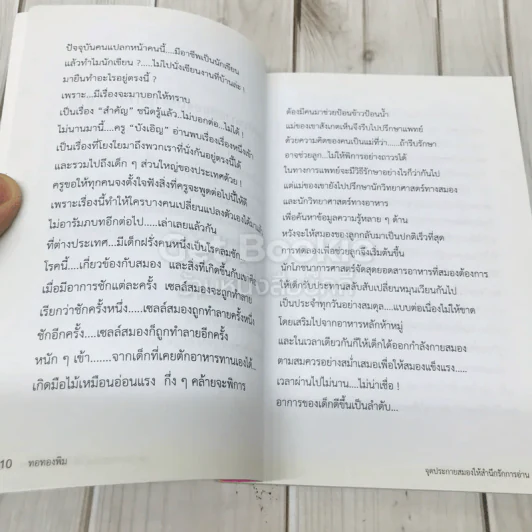 ปัจจุบันคนแปลกหน้าคนนี้....มีอาชีพเป็นนักเขียน
แล้วทำไมนักเขียน ?.....ไม่ไปนั่งเขียนงานที่บ้านล่ะ !
มายืนทำอะไรอยู่ตรงนี้ ?
เพราะ....มีเรื่องจะมาบอกให้ทราบ
เป็นเรื่อง "สำคัญ" ชนิดรู้แล้ว..ไม่บอกต่อ...ไม่ได้ !
ไม่นานมานี้....ครู "บังเอิญ" อ่านพบเรื่องเรื่องหนึ่งเข้า
เป็นเรื่องที่โยงใยมาถึงพวกเราที่นั่งกันอยู่ตรงนี้ได้
และรวมไปถึงเด็ก ๆ ส่วนใหญ่ของประเทศด้วย !
ครูขอให้ทุกคนจงตั้งใจฟังสิ่งที่ครูจะพูดต่อไปนี้ให้ดี
เพราะเรื่องนี้ทำให้ใครบางคนเปลี่ยนแปลงตัวเองได้
ไม่อารัมภบทอีกต่อไป....เล่าเลยแล้วกัน
ที่ต่างประเทศ...มีเด็กฝรั่งคนหนึ่งเป็นโรคลมชัก
โรคนี้....เกี่ยวข้องกับสมอง และสิ่งที่เกิดขึ้นกับ
เมื่อมีอาการชักแต่ละครั้ง เซลล์สมองจะถูกทำลาย
เรียกว่าชักครั้งหนึ่ง.....เซลล์สมองถูกทำลายครั้งหนึ่ง
ชักอีกครั้ง....เซลล์สมองก็ถูกทำลายอีกครั้ง
หนัก ๆ เข้า.......จากเด็กที่เคยตักอาหารทานเองได้..
เกิดมือไม้เหมือนอ่อนแรง กึ่ง ๆ คล้ายจะพิการ
10 ทอทองพิม
ต้องมีคนมาช่วยป้อนข้าวป้อนน้ำ
แม่ของเขาสังเกตเห็นจึงรีบไปปรึกษาแพทย์
ด้วยความคิดของคนเป็นแม่ที่ว่า.....ถ้ารีบรักษา
อาจช่วยลูก....ไม่ให้พิการอย่างถาวรได้
ในทางการแพทย์จะมีวิธีรักษาอย่างไรก็ว่ากันไป
แต่แม่ของเขายังไปปรึกษานักวิทยาศาสตร์ทางสมอง
และนักวิทยาศาสตร์ทางอาหาร
เพื่อค้นหาข้อมูลความรู้หลาย ๆ ด้าน
หวังจะให้สมองของลูกกลับมาเป็นปกติเร็วที่สุด
การทดลองเพื่อช่วยลูกจึงเริ่มต้นขึ้น
นักโภชนาการศาสตร์จัดสุดยอดสารอาหารที่สมองต้องการ
ให้เด็กรับประทานสลับสับเปลี่ยนหมุนเวียนกันไป
เป็นประจำทุกวันอย่างสมดุล....แบบต่อเนื่องไม่ให้ขาด
โดยเสริมไปจากอาหารหลักห้าหมู่
และในเวลาเดียวกันก็ให้เด็กได้ออกกำลังกายสมอง
ตามสมควรอย่างสม่ำเสมอเพื่อให้สมองแข็งแรง.....
เวลาผ่านไปไม่นาน....ไม่น่าเชื่อ !
อาการของเด็กดีขึ้นเป็นลำดับ...
จุดประกายสมองให้สำนึกรักการอ่าน